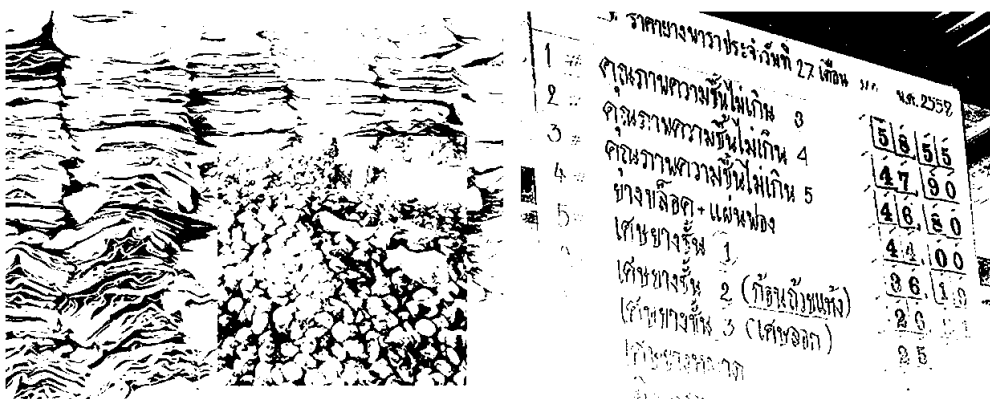 ราคายางพาราประจำวันที่ 27 เดือน พ.ศ. 2552
1 # คุณภาพความชื้นไม่เกิน 3 58 55
2 # คุณภาพความชื้นไม่เกิน 4 47 90
3 # คุณภาพความชื้นไม่เกิน 5 46 80
4 # ยางบล็อค + แผ่นฟอง 44 00
5 # เศษยางชั้น 1 36
เศษยางชั้น 2 (ก้อนถ้วยแห้ง)
เศษยางชั้น 3 (เศษออก) 25